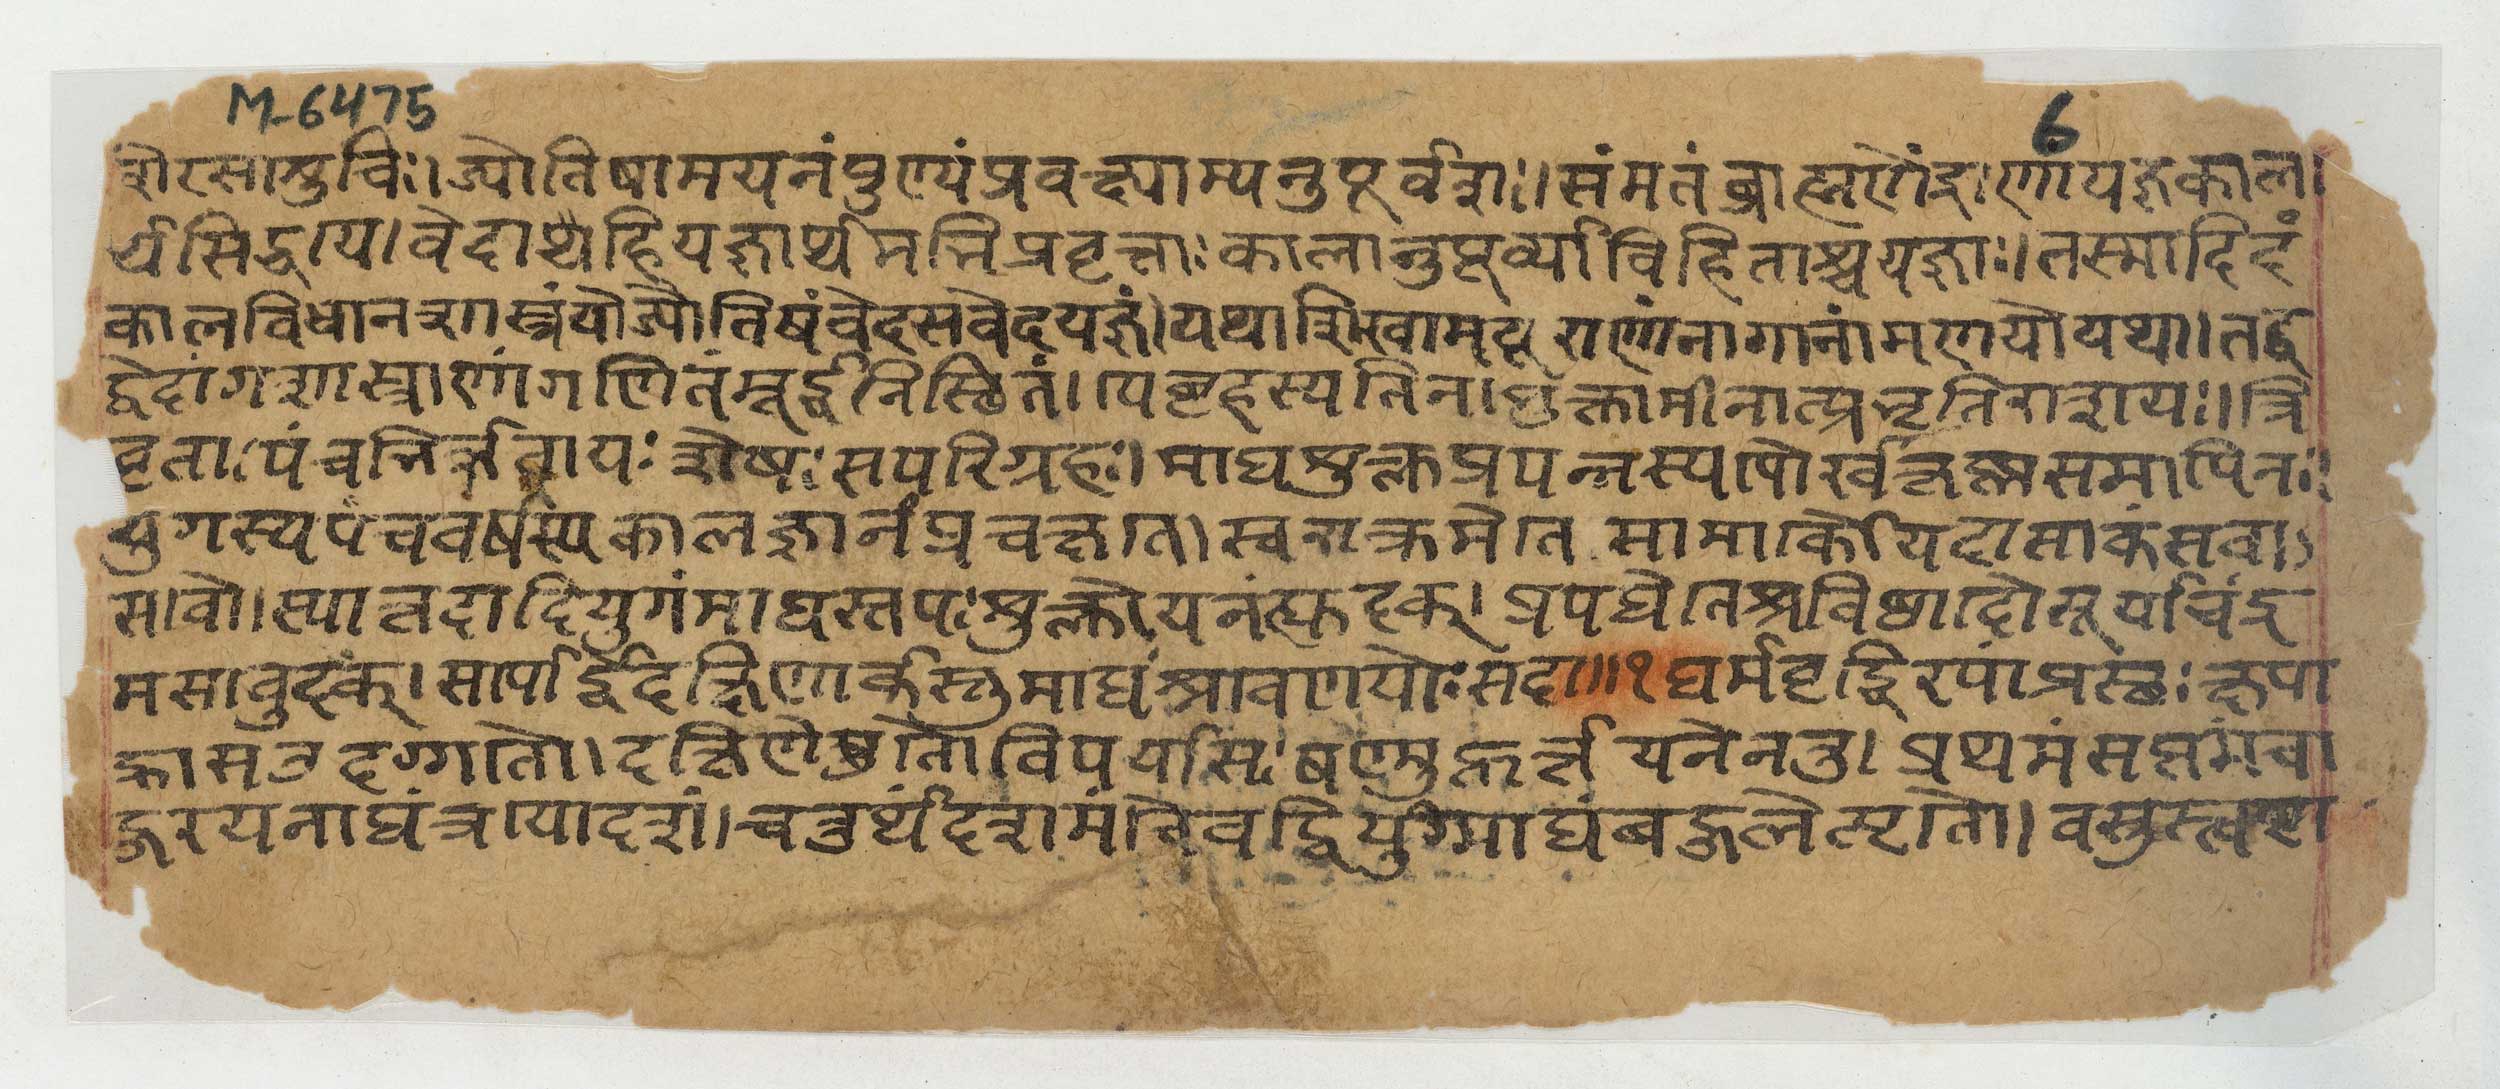 M-6475
6
शिरसाशुचिः।ज्योतिषामयनंपुण्यंप्रवक्ष्याम्यनुपूर्वशः।संमतंब्राह्मणेंद्राणांयज्ञकाला
र्थसिद्धये।वेदाहियज्ञार्थमभिप्रवृत्ताःकालानुपूर्व्याविहिताश्चयज्ञाः।तस्मादिदं
कालविधानशास्त्रंयोज्योतिषंवेदसवेदयज्ञं।यथाशिखामयूराणांनागानांमणयोयथा।तद्व
द्वेदांगशास्त्राणांगणितंमूर्द्ध्निस्थितं।
वृताः सपरिग्रहः।माघशुक्लप्रपन्नस्यपौषकृष्णसमापिनः
युगस्यपंचवर्षस्यकालज्ञानंप्रचक्षते।स्वराक्रमेतेसोमार्कौयदासाकंसवा
सवौ।स्यात्तदादियुगंमाघस्तपःशुक्लोयनंह्युदक्।प्रपद्येतेश्रविष्ठादौसूर्याचंद्र
मसावुदक्।सार्पार्द्धेदक्षिणार्कस्तुमाघश्रावणयोःसदा॥१घर्मवृद्धिरपांप्रस्थःक्षपा
ह्रासउदग्गतौ।दक्षिणेतौविपर्यासःषण्मुहूर्त्ययनेनतु।प्रथमंसप्तमंचा
हुरयनाद्यंत्रयोदशं।चतुर्थंदशमंचैवद्विर्युग्माद्यंबहुलेप्यृतौ।वसुस्त्वष्टा